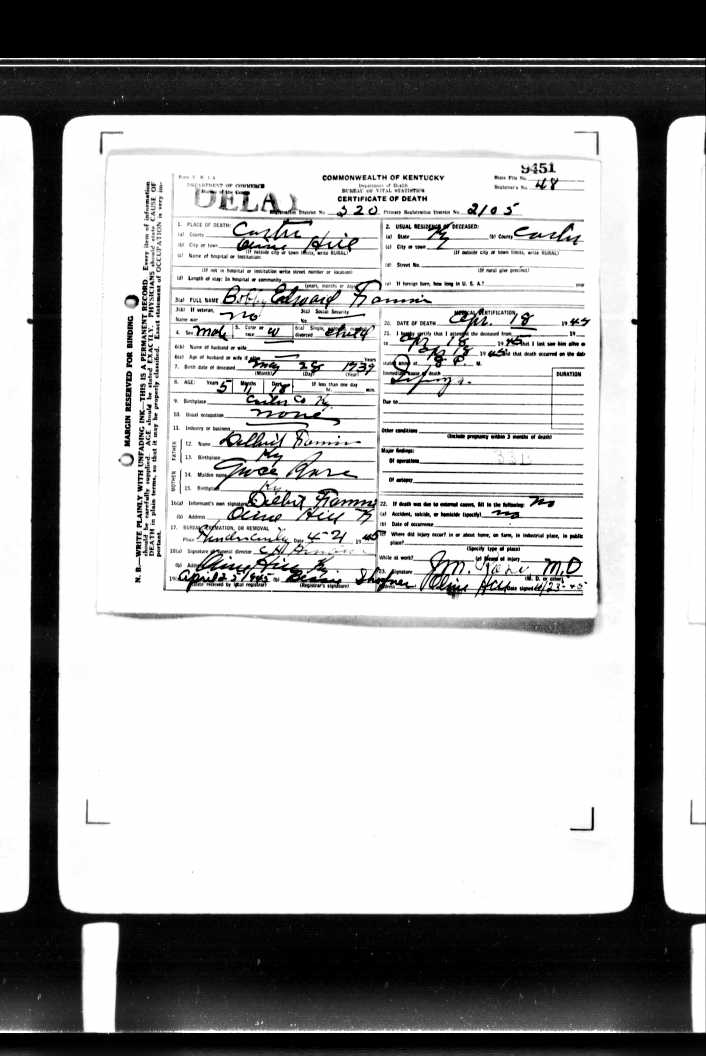 MARGIN RESERVED FOR BINDING
N. B.—WRITE PLAINLY WITH UNFADING INK—THIS IS A PERMANENT RECORD. Every item of information
should be carefully supplied. AGE should be stated EXACTLY. PHYSICIANS should state CAUSE OF
DEATH in plain terms, so that it may be properly classified. Exact statement of OCCUPATION is very im-
portant.
DEPARTMENT OF COMMERCE
DELAY
COMMONWEALTH OF KENTUCKY
Department of Health
BUREAU OF VITAL STATISTICS
CERTIFICATE OF DEATH
9451
State File No.
Registrar's No. 48
Registration District No. 320 Primary Registration District No. 2105
1. PLACE OF DEATH:
(a) County Carter
(b) City or town Olive Hill
(If outside city or town limits, write RURAL)
(c) Name of hospital or institution:
(If not in hospital or institution write street number or location)
(d) Length of stay: In hospital or community
(years, months or days)
2. USUAL RESIDENCE OF DECEASED:
(a) State Ky (b) County Carter
(c) City or town
(If outside city or town limits, write RURAL)
(d) Street No.
(If rural give precinct)
(e) If foreign born, how long in U. S. A.? years
3(a) FULL NAME Bobby Edward
3(b) If veteran, 3(c) Social Security
Name war no No.
4. Sex male 5. Color or race W 6(a) Single, married, divorced child
6(b) Name of husband or wife
6(c) Age of husband or wife if alive Years
7. Birth date of deceased May 28 1939
(Month) (Day) (Year)
8. AGE: Years 5 Months 11 Days 18 If less than one day
hr. min.
9. Birthplace Carter Co Ky
10. Usual occupation none
11. Industry or business
FATHER
12. Name
13. Birthplace Ky
MOTHER
14. Maiden name
15. Birthplace Ky
16(a) Informant's own signature
(b) Address Olive Hill Ky
17. BURIAL, CREMATION, OR REMOVAL
Place Date 4-21 1945
18(a) Signature of funeral director C H
(b) Address Olive Hill Ky
19(a) April 25 1945 (b) Bessie
(Date received by local registrar) (Registrar's signature)
MEDICAL CERTIFICATION
20. DATE OF DEATH Apr. 18 19
21. I hereby certify that I attended the deceased from 19
to Apr 18 1945 that I last saw him alive on
Apr 18 1945 and that death occurred on the date
stated above at 8 P. M.
Immediate cause of death
DURATION
Due to
Other conditions
(Include pregnancy within 3 months of death)
Major findings:
Of operations
Of autopsy
22. If death was due to external causes, fill in the following: no
(a) Accident, suicide, or homicide (specify) no
(b) Date of occurrence
(c) Where did injury occur? in or about home, on farm, in industrial place, in public
place?
(Specify type of place)
While at work? (e) Means of injury
23. Signature J M. M.D
(M. D. or other)
Address Olive Hill Date signed 4/23-45